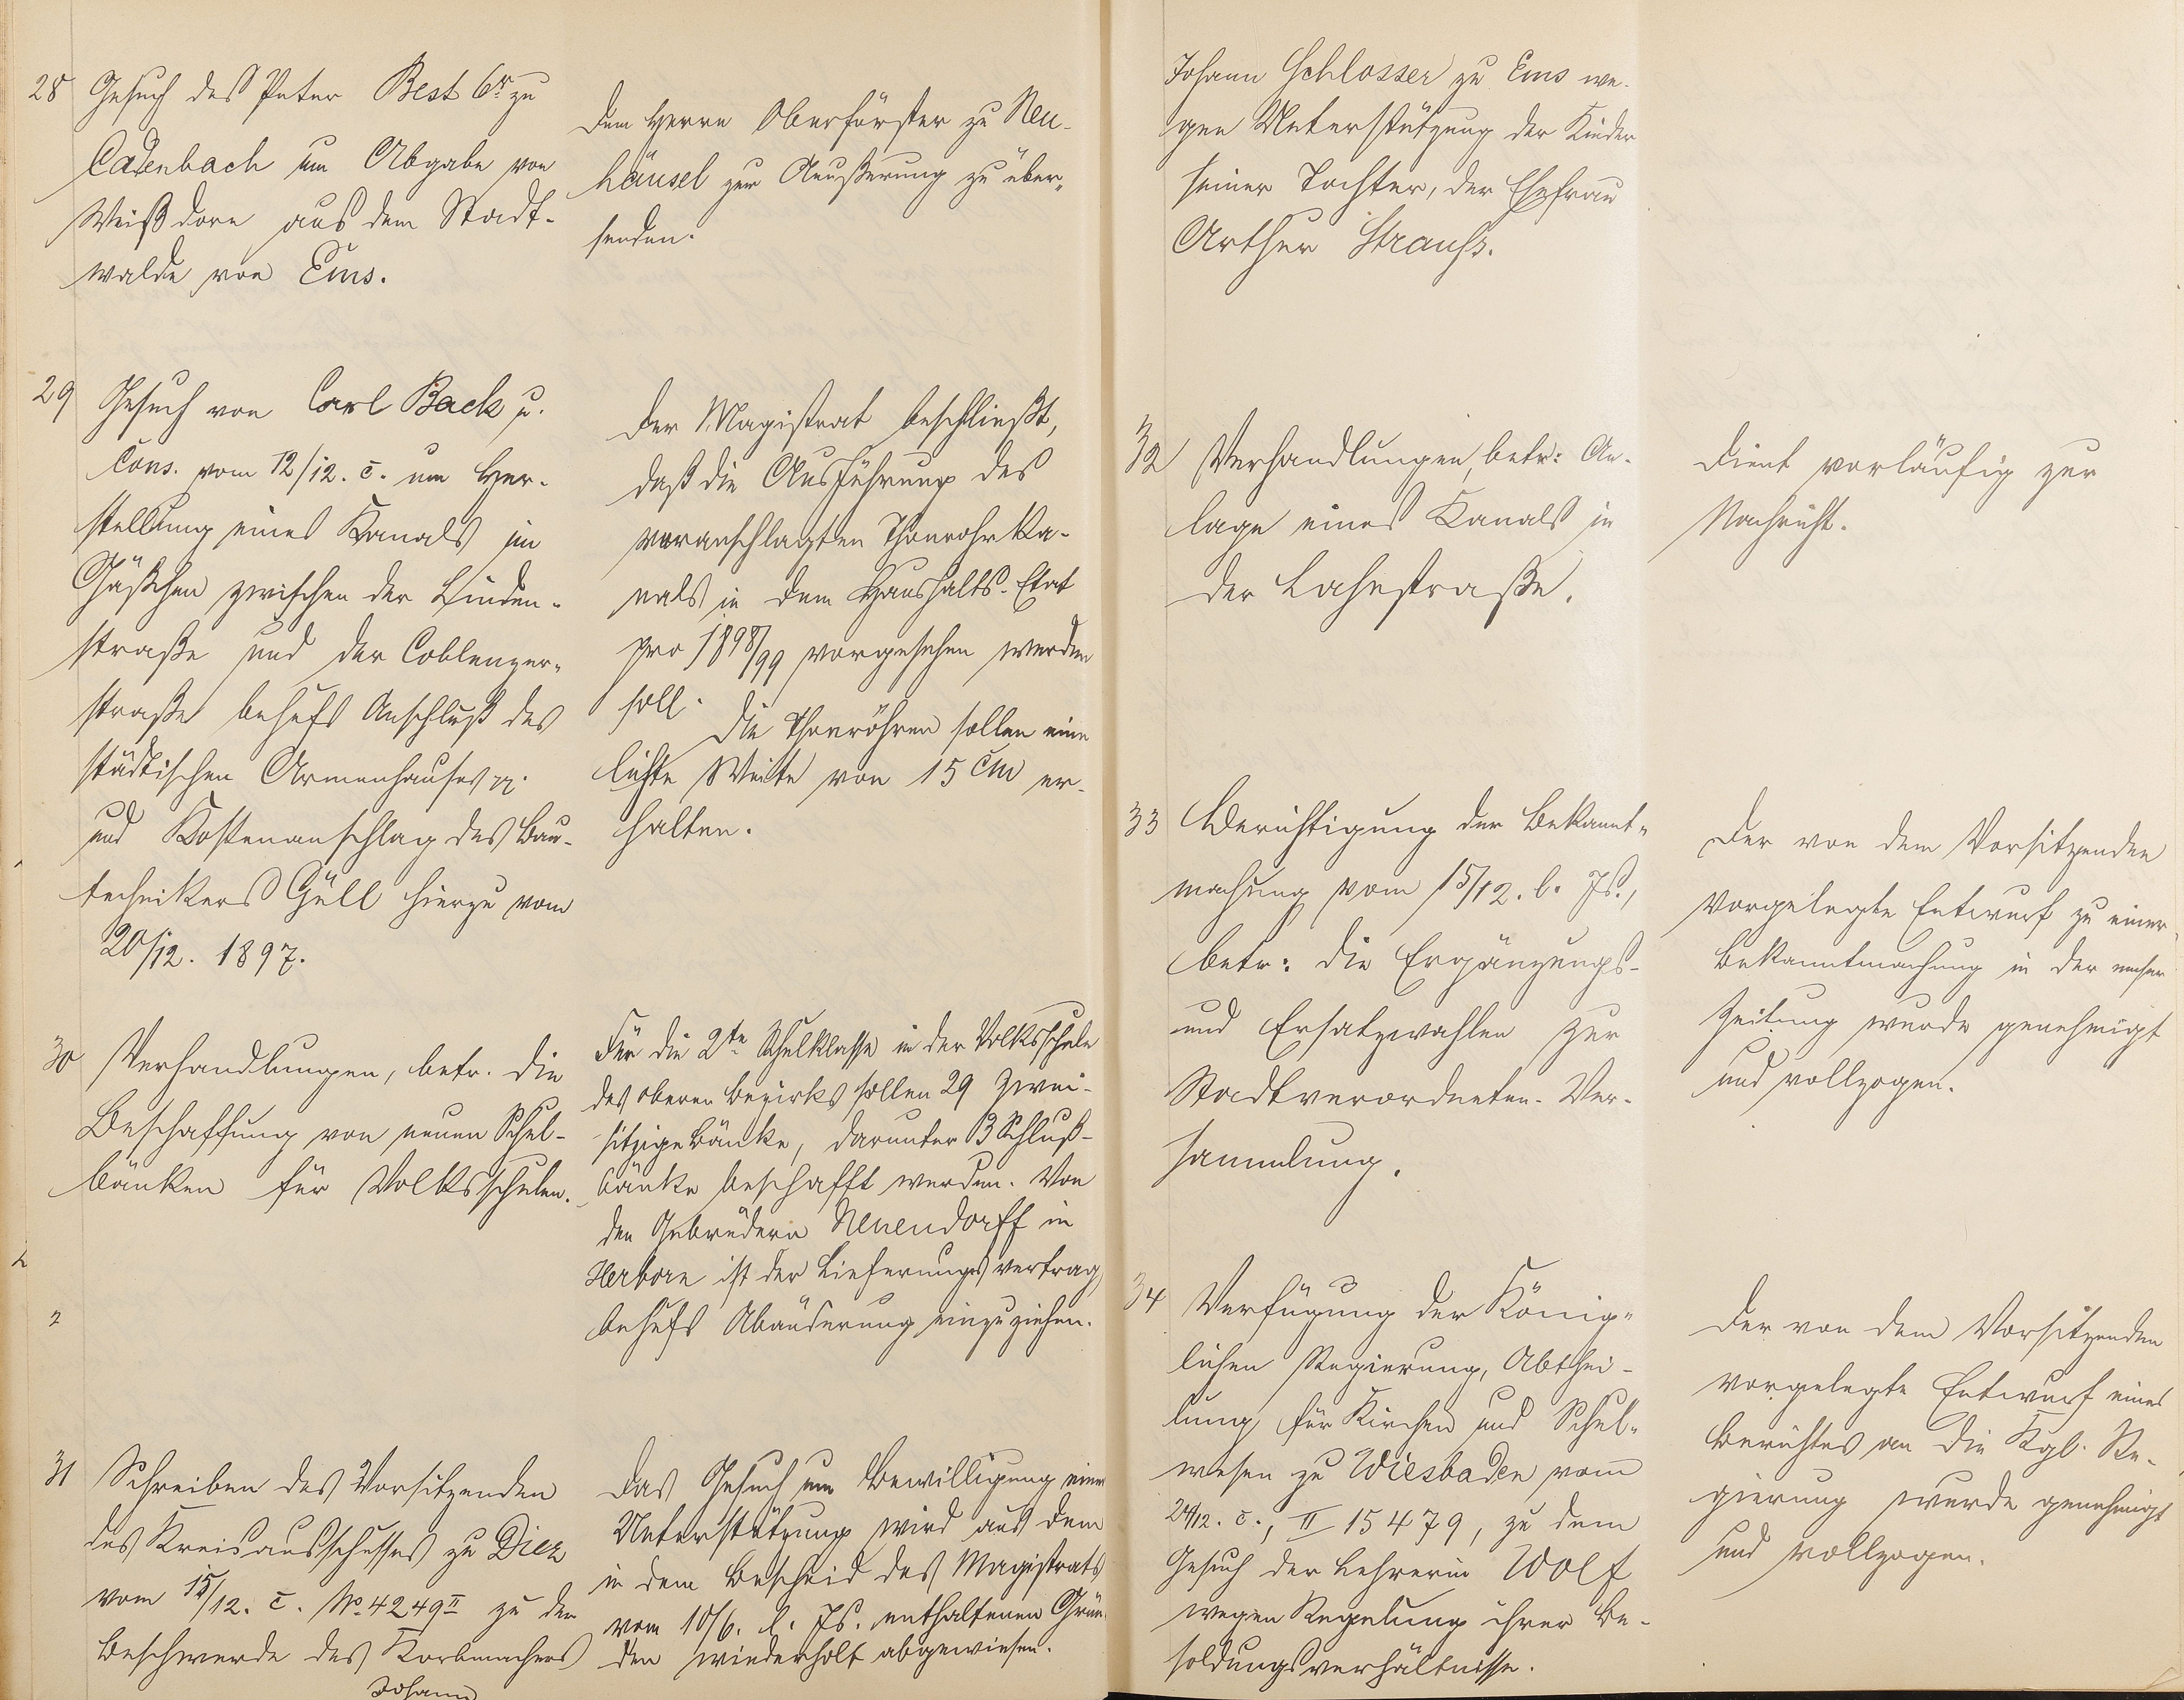 28 Gesuch des Peter Best 6r zu
Cadenbach um Abgabe von
Weißdorn aus dem Stadt-
walde von Ems.
Dem Herrn Oberförster zu Neu-
häusel zur Äußerung zu über-
senden.
29 Gesuch von Carl Back u.
Cons. vom 12/12. c. um Her-
stellung eines Kanals im
Gäßchen zwischen der Linden-
straße und der Coblenzer-
straße behufs Anschluß des
städtischen Armenhauses pp.
und Kostenanschlag des Bau-
technikers Güll hierzu vom
20/12. 1897.
Der Magistrat beschließt,
daß die Ausführung des
veranschlagten Thonrohrka-
nals in dem Haushalts-Etat
pro 1898/99 vorgesehen werden
soll.
Die Thonröhren sollen eine
lichte Weite von 15 cm er-
halten.
30 Verhandlungen, betr. die
Beschaffung von neuen Schul-
bänken für Volksschulen.
Für die 2te Schulklasse in der Volksschule
des oberen Bezirks sollen 29 zwei-
sitzige Bänke, darunter 3 Schluß-
bänke beschafft werden. Von
den Gebrüdern Neuendorff in
Herborn ist der Lieferungsvertrag
behufs Abänderung einzuziehen.
31 Schreiben des Vorsitzenden
des Kreisausschusses zu Diez
vom 15/12. c. No. 4249 II zu der
Beschwerde des Korbmachers
Johann
Das Gesuch um Bewilligung einer
Unterstützung wird aus dem
in dem Bescheid des Magistrats
vom 10/6. l. Js. enthaltenen Grün-
den wiederholt abgewiesen.
Johann Schlosser zu Ems we-
gen Unterstützung der Kinder
seiner Tochter, der Ehefrau
Arthur Strauss.
32 Verhandlungen, betr: An-
lage eines Kanals in
der Lahnstraße.
Dient vorläufig zur
Nachricht.
33 Berichtigung der Bekannt-
machung vom 15/12. l. Js.,
betr: die Ergänzungs-
und Ersatzwahlen zur
Stadtverordneten-Ver-
sammlung.
Der von dem Vorsitzenden
vorgelegte Entwurf zu einer
Bekanntmachung in der emser
Zeitung wurde genehmigt
und vollzogen.
34 Verfügung der König-
lichen Regierung, Abthei-
lung für Kirchen und Schul-
wesen zu Wiesbaden vom
24/12. c., II 15479, zu dem
Gesuch der Lehrerin Wolf
wegen Regelung ihrer Be-
soldungsverhältnisse.
Der von dem Vorsitzenden
vorgelegte Entwurf eines
Berichtes an die Kgl. Re-
gierung wurde genehmigt
und vollzogen.